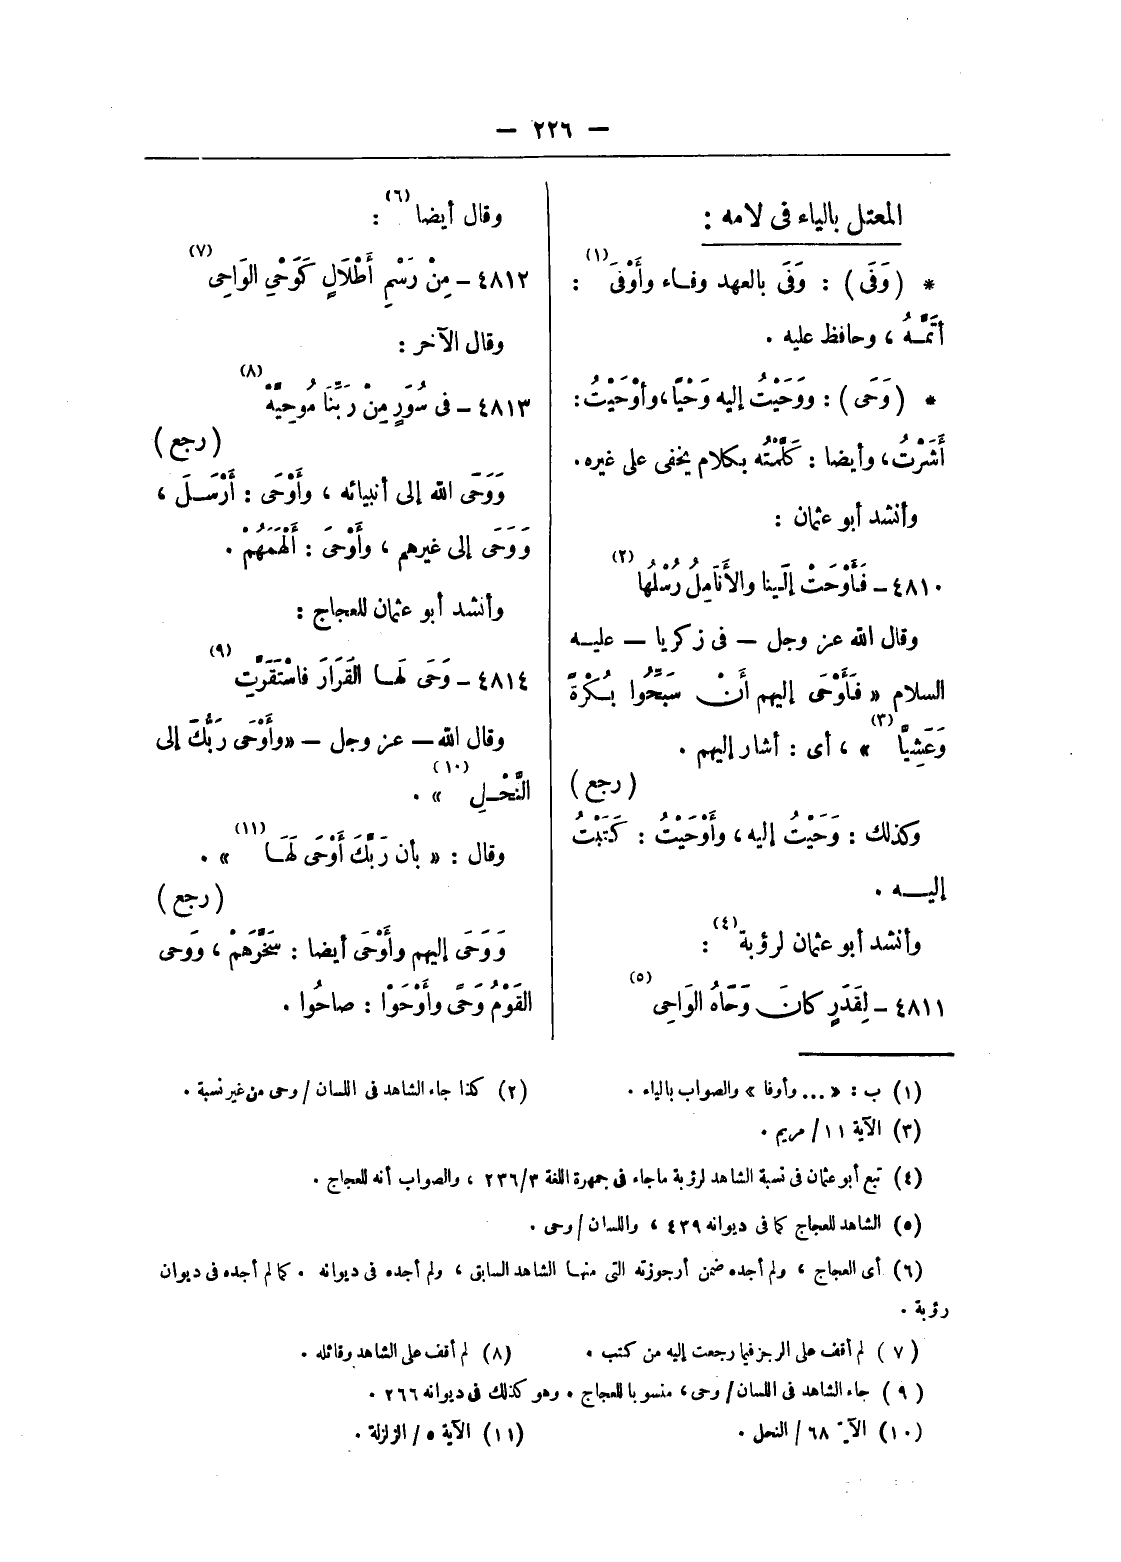 — ٢٢٦ —
المعتل بالياء فى لامه :
* ( وَفَى ) : وَفَى بالعهد وفـاء وأَوْفَى (١) :
أَتَمَّـهُ ، وحافظ عليه .
* ( وَحَى ) : ووَحَيْتُ إليه وَحْيًا ، وأَوْحَيْتُ :
أَشَرْتُ ، وأيضا : كَلَّمْتُه بكلام يخفى على غيره .
وأنشد أبو عثمان :
٤٨١٠ – فَأَوْحَتْ إلَينا والأَنَامِلُ رُسْلُها (٢)
وقال الله عز وجل — فى زكريا — عليـه
السلام « فَأَوْحَى إليهم أَنْ سَبِّحُوا بُـكْرَةً
وَعَشِيًّا (٣) » ، أى : أشار إليهم .
( رجع )
وكذلك : وَحَيْتُ إليه ، وأَوْحَيْتُ : كَتَبْتُ
إليـــه .
وأنشد أبو عثمان لرؤبة (٤) :
٤٨١١ – لِقَدَرٍ كانَ وَحَّاهُ الوَاحِى (٥)
وقال أيضا (٦) :
٤٨١٢ – مِنْ رَسْمِ أَطْلَالٍ كَوَحْىِ الوَاحِى (٧)
وقال الآخر :
٤٨١٣ – فى سُوَرٍ مِنْ رَبِّنَا مُوحِيَّهْ (٨)
( رجع )
وَوَحَى الله إلى أنبيائه ، وأَوْحَى : أَرْسَـلَ ،
وَوَحَى إلى غيرهم ، وأَوْحَى : أَلْهَمَهُمْ .
وأنشد أبو عثمان للعجاج :
٤٨١٤ – وَحَى لَهـا القَرَارَ فاسْتَقَرَّتِ (٩)
وقال الله — عز وجل — «وأَوْحَى رَبُّكَ إلى
النَّحْـلِ (١٠) » .
وقال : « بأن رَبَّكَ أَوْحَى لَهَـا (١١) » .
( رجع )
وَوَحَى إليهم وأَوْحَى أيضا : سَخَّرَهَمْ ، ووَحى
القَوْمُ وَحًى وأَوْحَوْا : صاحُوا .
(١) ب : « ... وأوفا » والصواب بالياء . (٢) كذا جاء الشاهد فى اللسان / وحى من غير نسبة .
(٣) الآية ١١ / مريم .
(٤) تبع أبو عثمان فى نسبة الشاهد لرؤبة ما جاء فى جمهرة اللغة ٢٣٦/٣ ، والصواب أنه للعجاج .
(٥) الشاهد للعجاج كما فى ديوانه ٤٣٩ ، واللسان / وحى .
(٦) أى العجاج ، ولم أجده ضمن أرجوزته التى منهـا الشاهد السابق ، ولم أجده فى ديوانه . كما لم أجده فى ديوان
رؤبة .
( ٧ ) لم أقف على الرجز فيما رجعت إليه من كتب . (٨) لم أقف على الشاهد وقائله .
( ٩ ) جاء الشاهد فى اللسان / وحى ، منسوبا للعجاج . وهو كذلك فى ديوانه ٢٦٦ .
(١٠) الآية ٦٨ / النحل . (١١) الآية ٥ / الزلزلة .